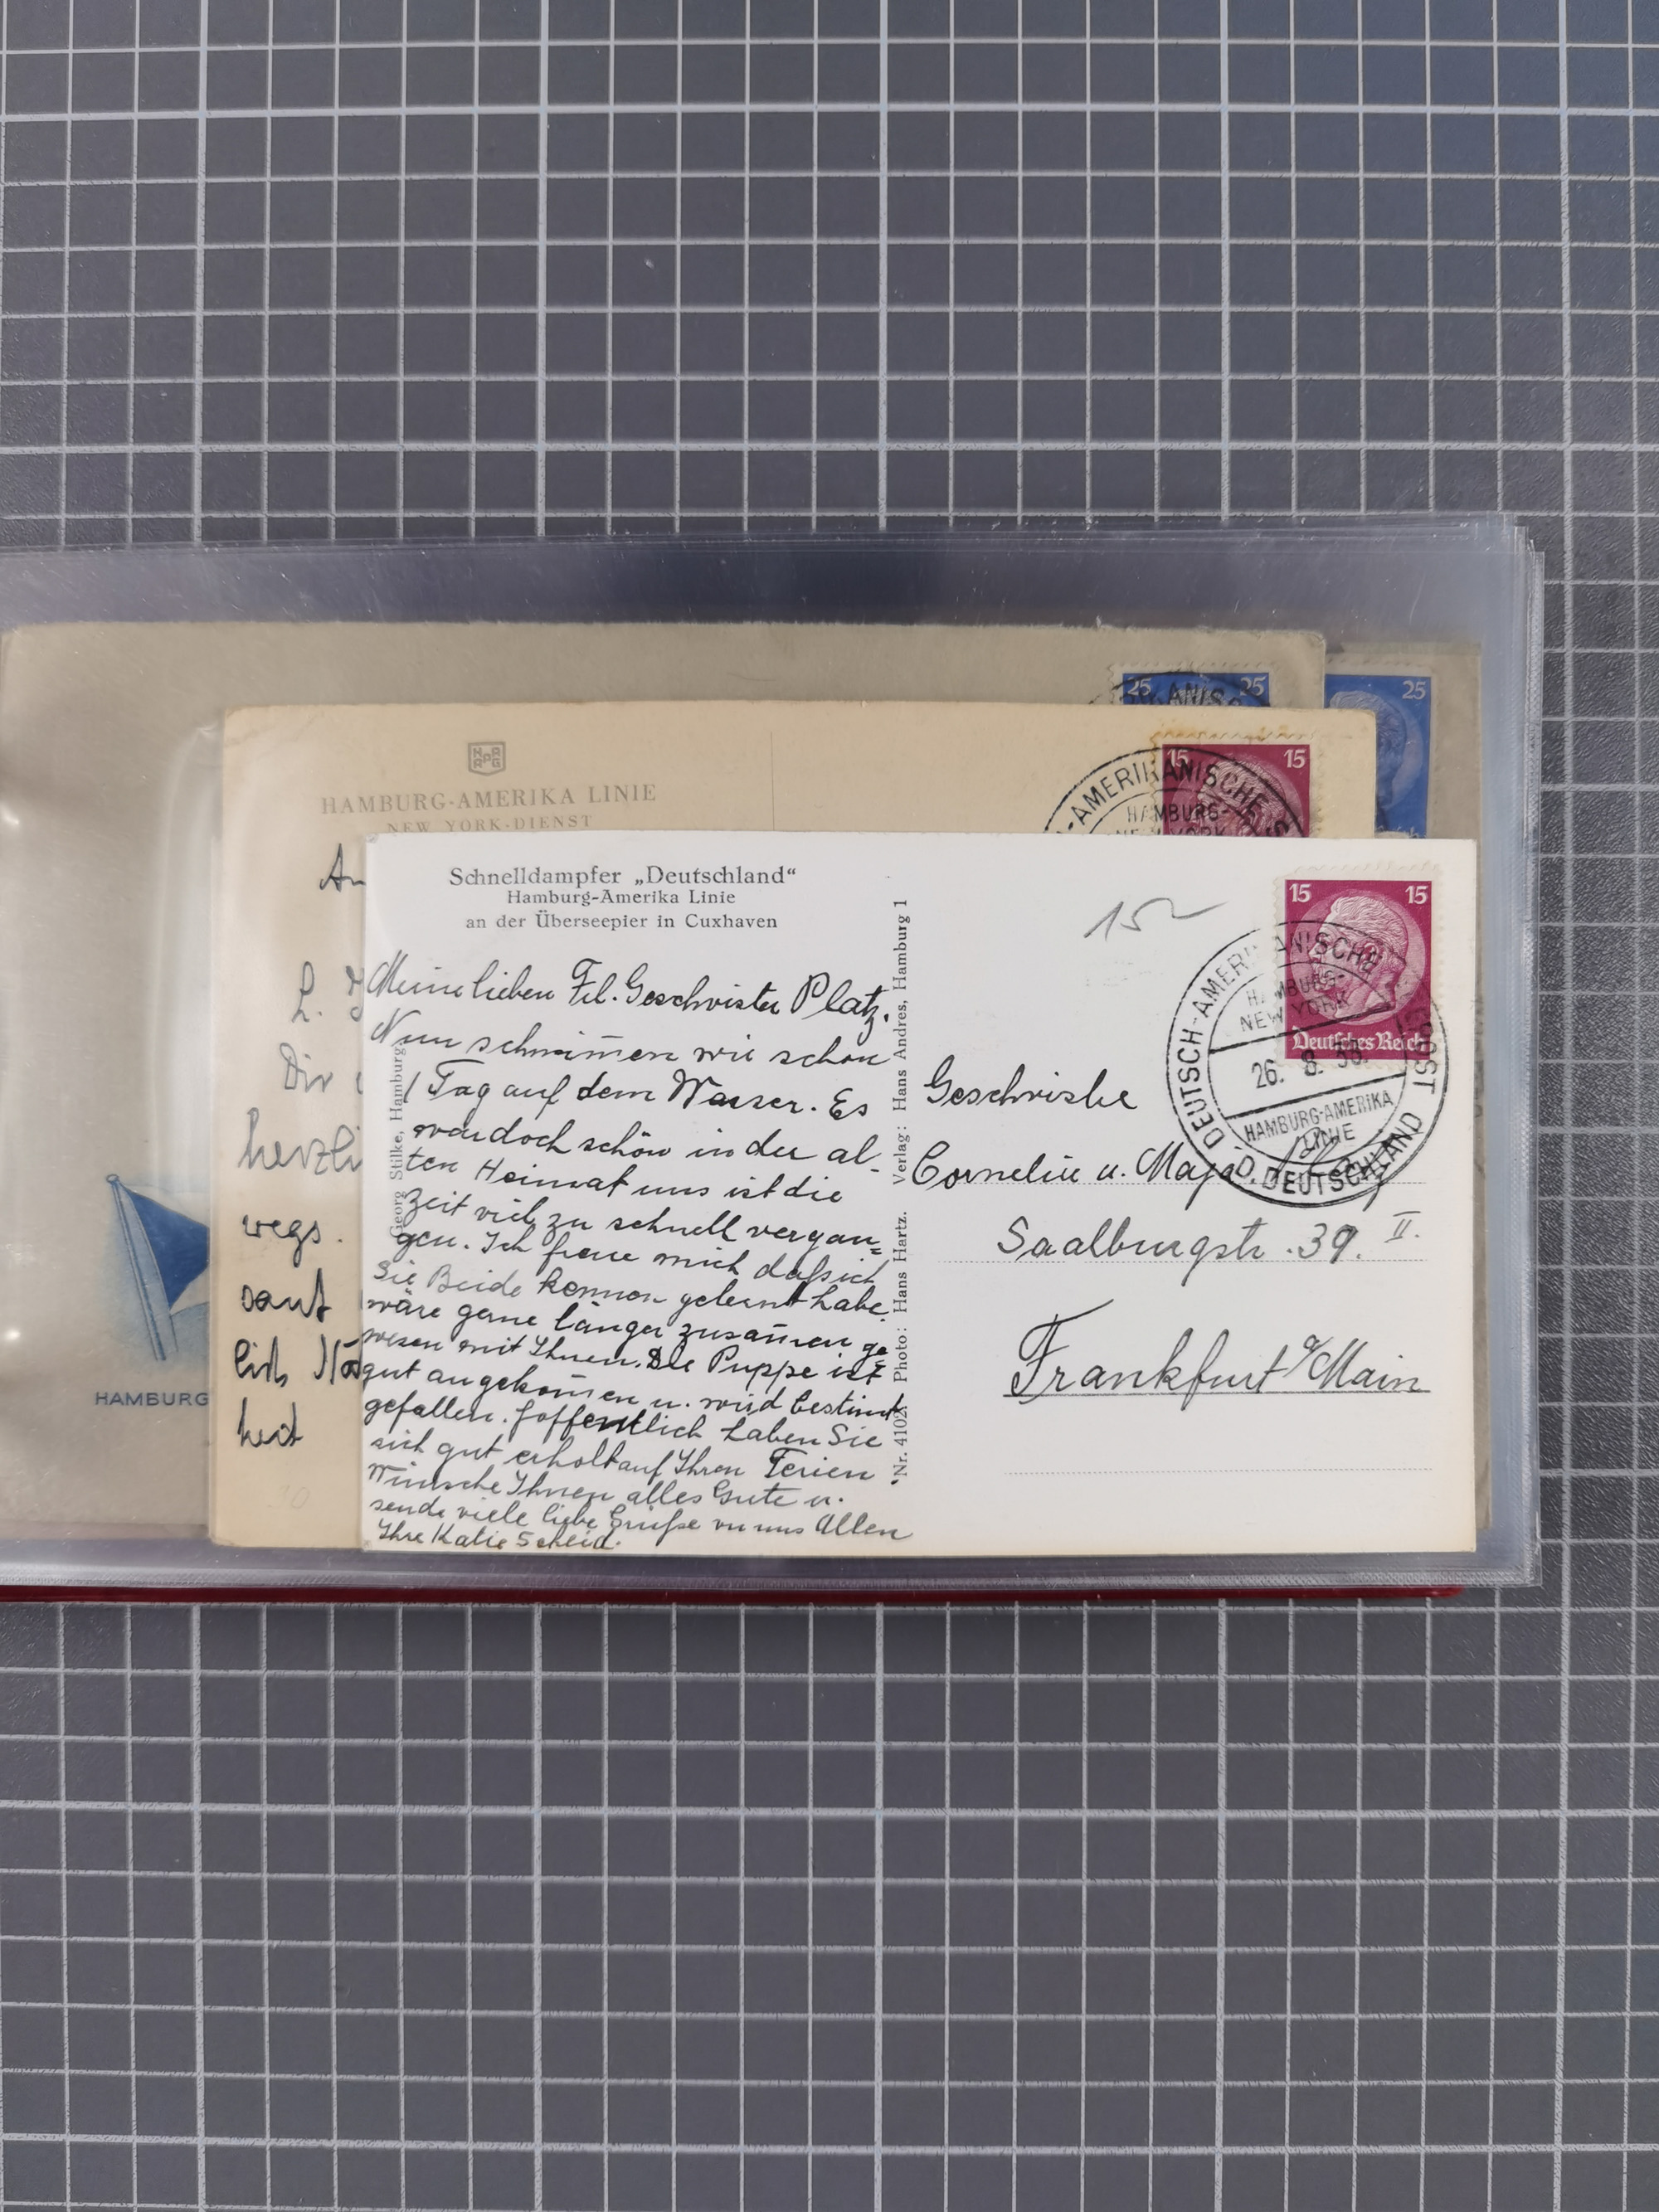 25 25
25
HAPAG
HAMBURG-AMERIKA LINIE
NEW YORK-DIENST
15 15
-AMERIKANISCHE
HAMBURG-
NEW YORK
An
L.
Dir
herzli
wegs.
sant
lich
HAMBURG
Schnelldampfer „Deutschland“
Hamburg-Amerika Linie
an der Überseepier in Cuxhaven
Meine lieben Frl. Geschwister Platz.
Nun schwim̅en wir schon
1 Tag auf dem Wasser. Es
war doch schön in der al-
ten Heimat uns ist die
Zeit viel zu schnell vergan=
gen. Ich freue mich daß ich
Sie Beide kennen gelernt habe
wäre gerne länger zusam̅en ge=
wesen mit Ihnen. Die Puppe ist
gut angekom̅en u. wird bestimt
gefallen. Hoffentlich haben Sie
sich gut erholt auf Ihren Ferien
Wünsche Ihnen alles Gute u.
sende viele liebe Grüße von uns Allen
Ihre Katie Scheid.
Georg Stilke, Hamburg
Nr. 4102. Photo: Hans Hartz. Verlag: Hans Andres, Hamburg 1
15
15 15
Deutsches Reich
DEUTSCH-AMERIKANISCHE SEEPOST
HAMBURG-
NEW YORK
26. 8. 38.
HAMBURG-AMERIKA
LINIE
D. DEUTSCHLAND
Geschwister
Cornelie u.
Saalburgstr. 39. II.
Frankfurt a/Main